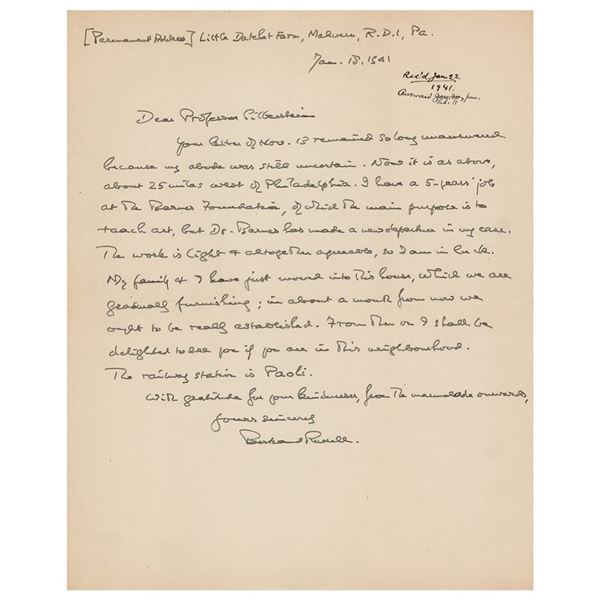 [Permanent Address] Little Datchet Farm, Malvern, R.D.1, Pa.
Jan. 18, 1941
Rec'd Jan. 22
1941.
Answered
Feb. 11
Dear Professor Silberstein
Your letter of Nov. 13 remained so long unanswered
because my abode was still uncertain. Now it is as above,
about 25 miles west of Philadelphia. I have a 5-years' job
at the Barnes Foundation, of which the main purpose is to
teach art, but Dr. Barnes has made a new departure in my case.
The work is light & altogether agreeable, so I am in luck.
My family & I have just moved into this house, which we are
gradually furnishing; in about a month from now we
ought to be really established. From then on I shall be
delighted to see you if you are in this neighbourhood.
The railway station is Paoli.
With gratitude for your kindnesses, from the marmalade onwards,
Yours sincerely
Bertrand Russell.